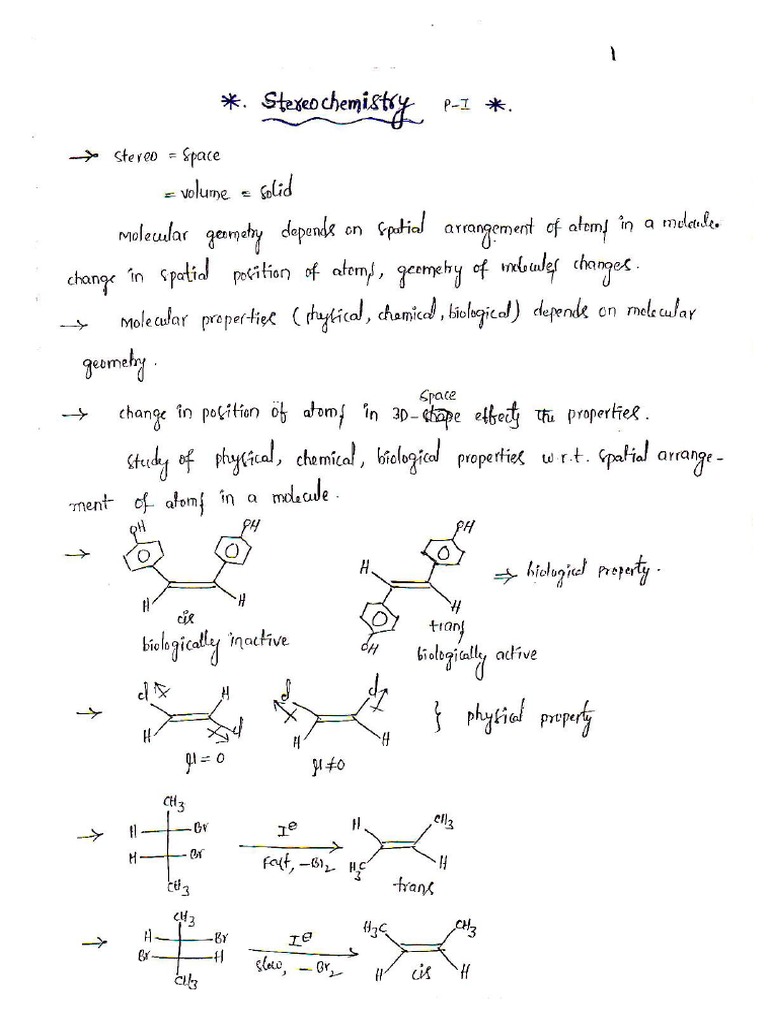 1
*. Stereochemistry P-I *.
→ stereo = space
= volume = solid
Molecular geometry depends on spatial arrangement of atoms in a molecule.
change in spatial position of atoms, geometry of molecules changes.
→ Molecular properties (physical, chemical, biological) depends on molecular
geometry.
space
→ change in position of atoms in 3D-shape effects the properties.
study of physical, chemical, biological properties w.r.t. spatial arrange-
ment of atoms in a molecule.
→ OH OH H H
cis
biologically inactive
H OH H OH
trans
biologically active
⇒ biological property.
→ cl H H cl
μ = 0
cl cl H H
μ ≠ 0
} physical property
→ CH3
H Br
H Br
CH3
I⊖
Fast, -Br2
H CH3
H3C H
trans
→ CH3
H Br
Br H
CH3
I⊖
slow, -Br2
H3C CH3
H H
cis